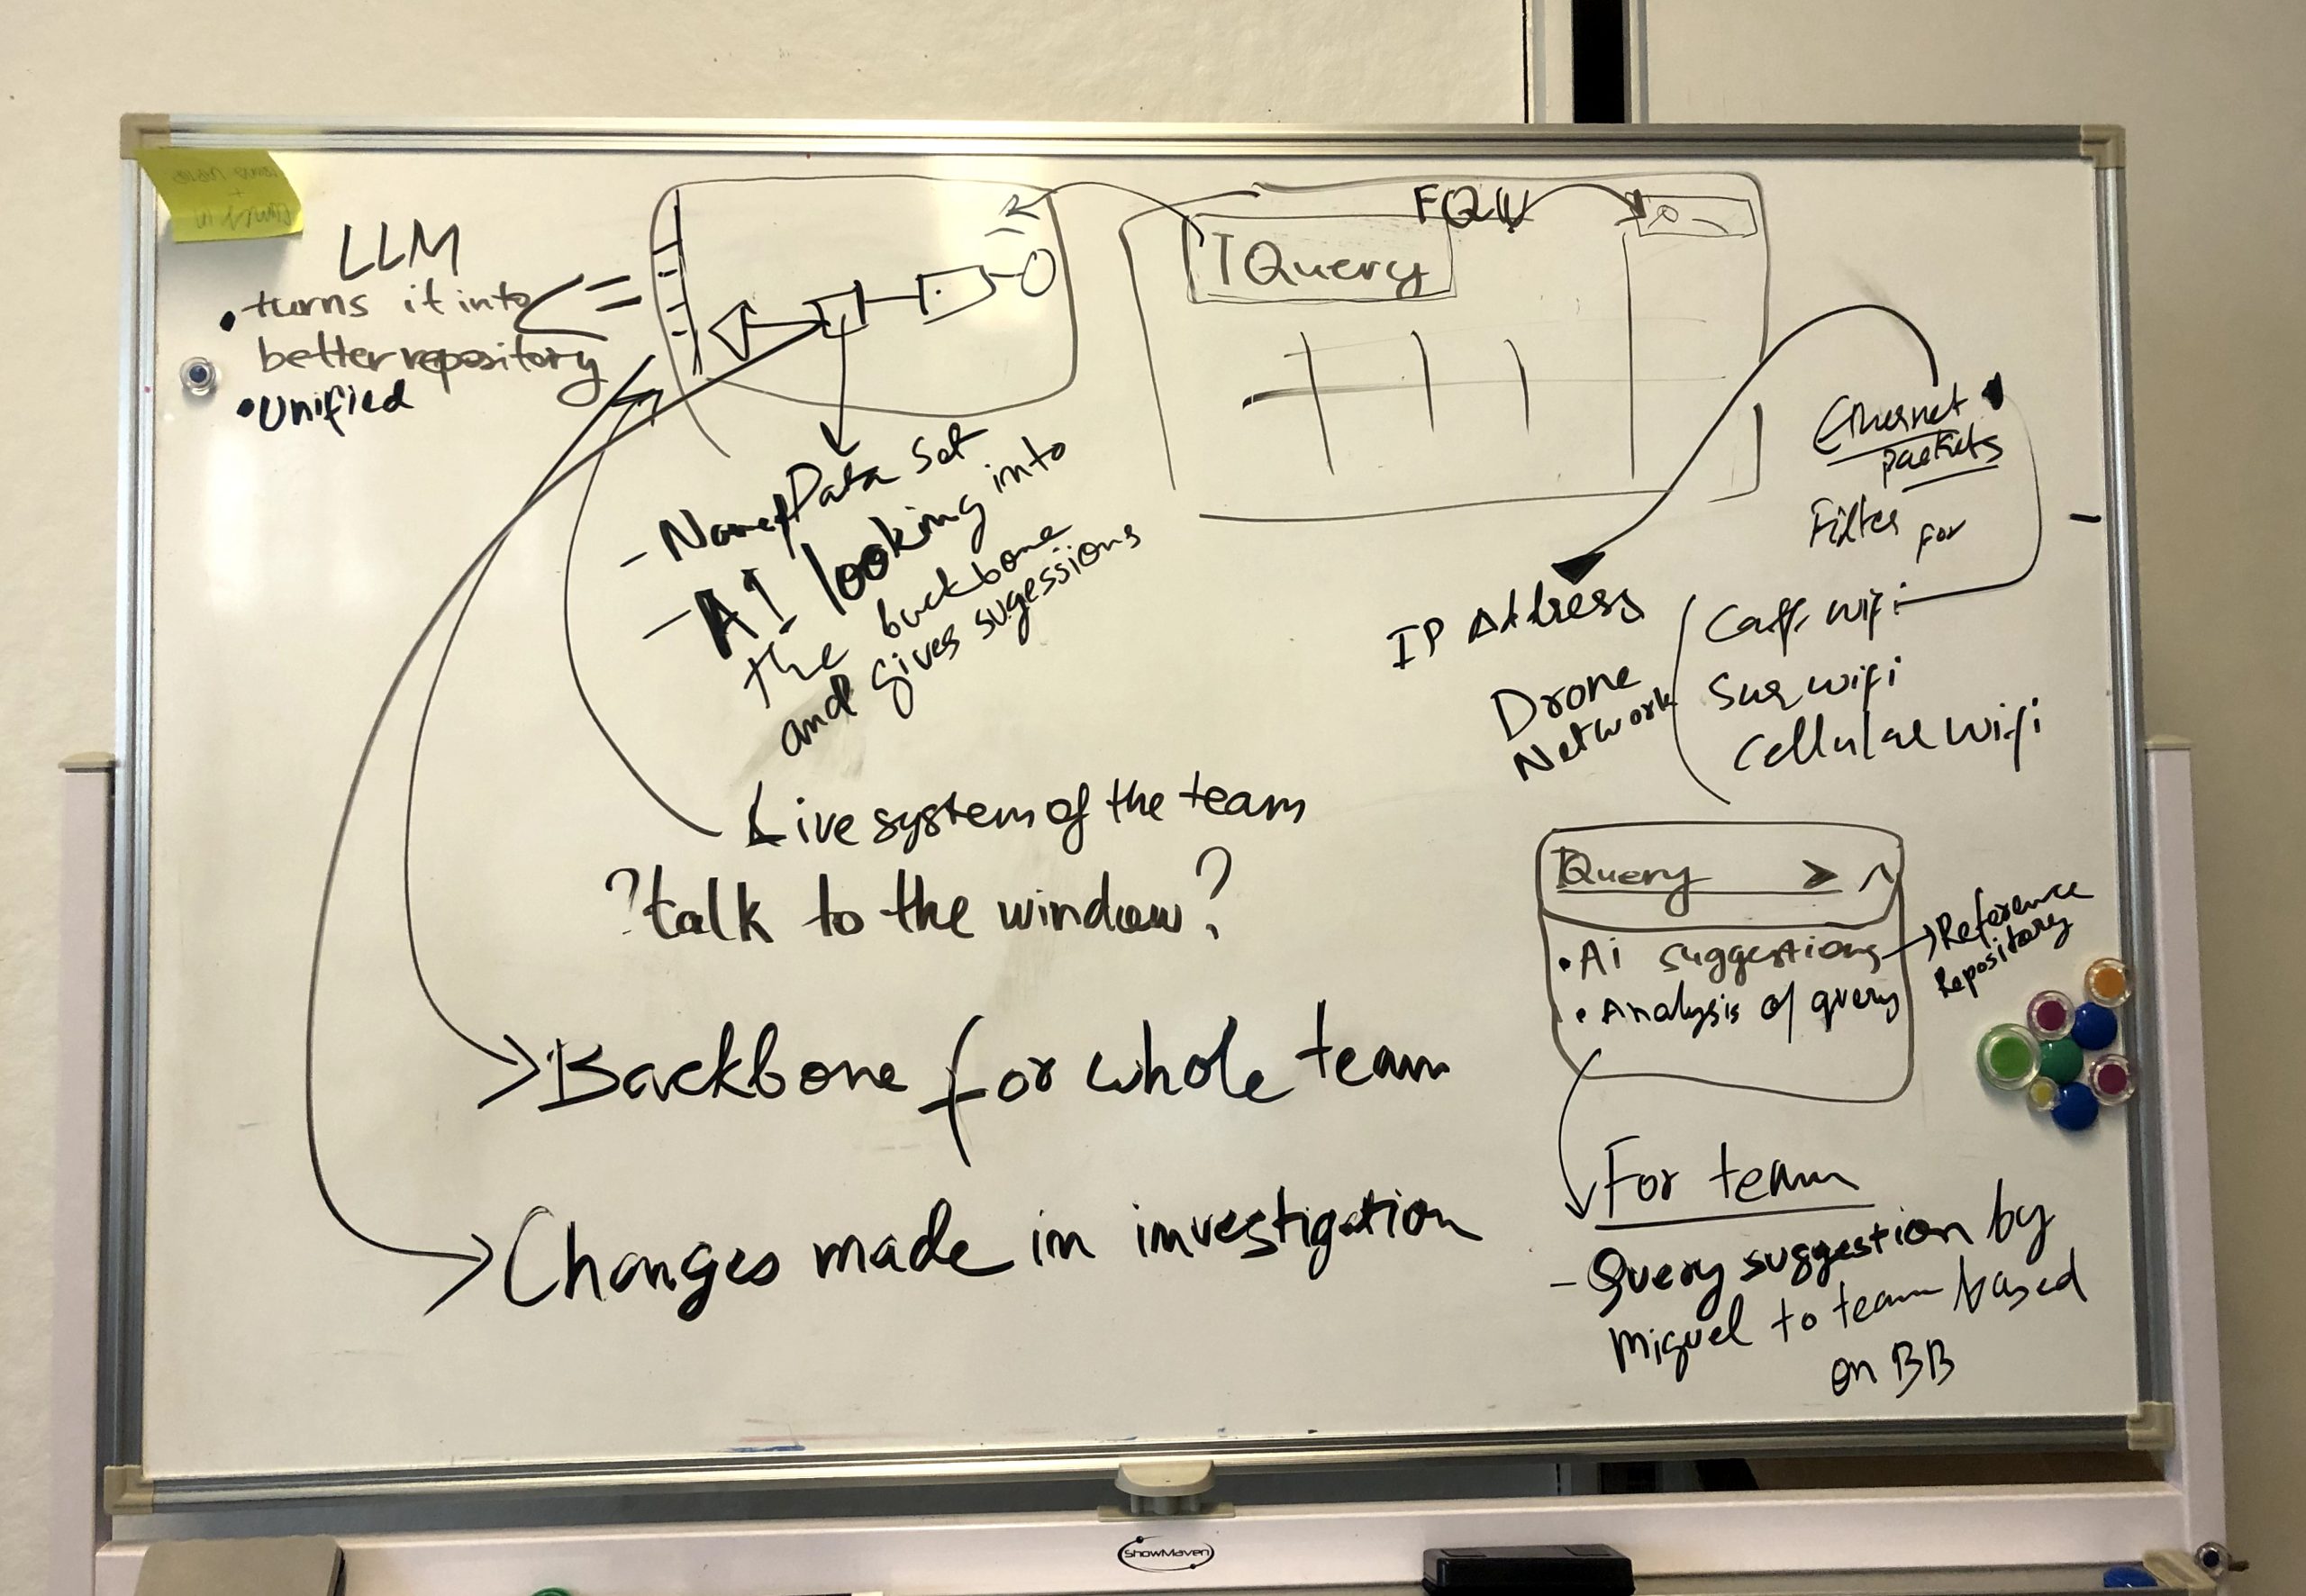 LLM
• turns it into
better repository
• Unified
FQW
Query
- Name Data Set
- AI looking into
the backbone
and gives sugessions
Live system of the team
?talk to the window?
Backbone for whole team
Changes made in investigation
Ethernet
packets
Filter for
IP Address
Drone
Network
wifi
Sur wifi
Cellular wifi
Query >
• Ai suggestions
• Analysis of query
Reference
Repository
For team
- Query suggestion by
Miguel to team based
on BB
ShowMaven